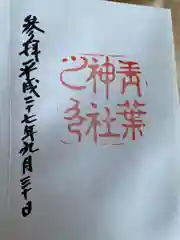 参拝平成二十七年九月三十日
青葉
神社
之印